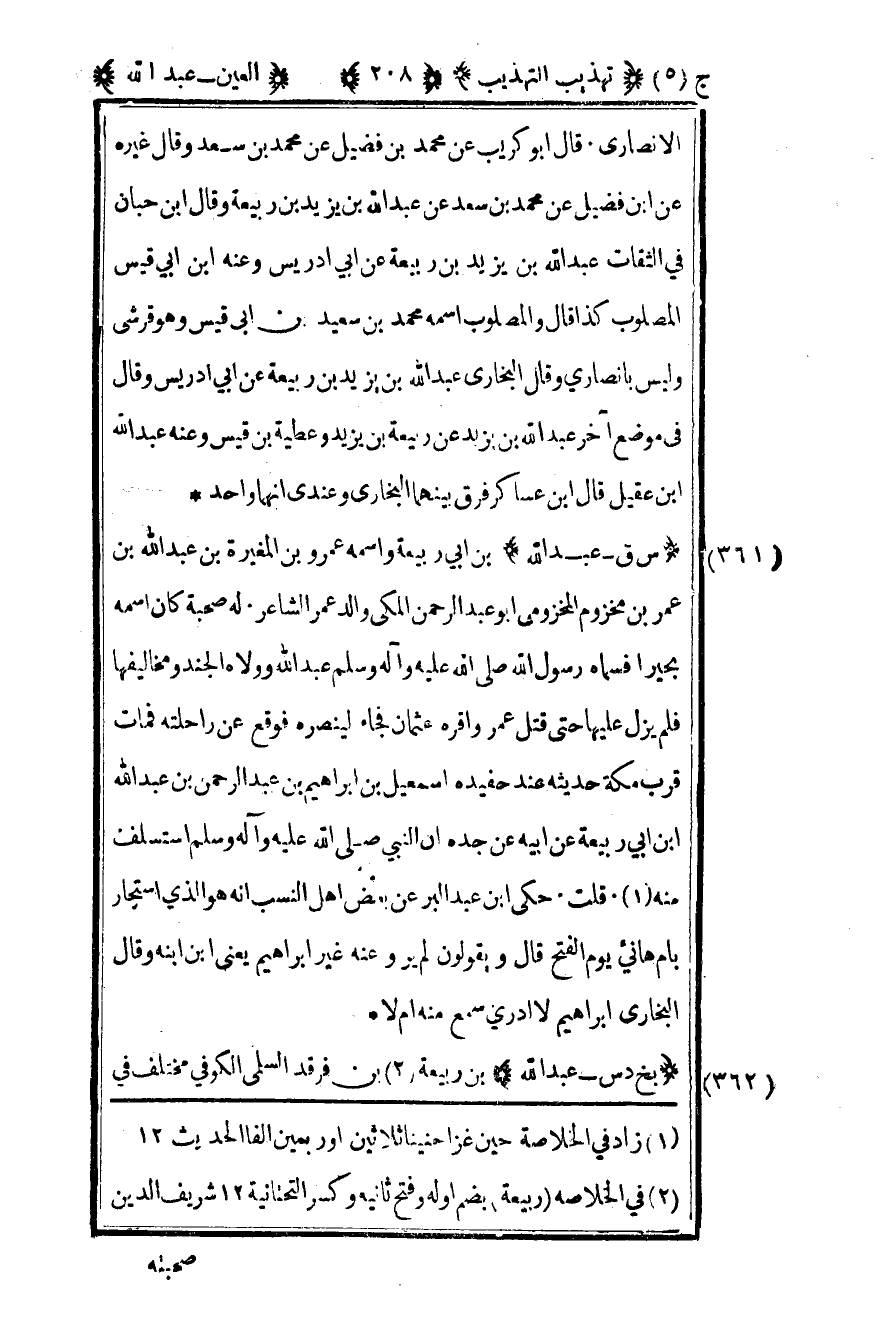 ج (٥) ﴿ تهذيب التهذيب ﴾ ﴿ ٢٠٨ ﴾ ﴿ العين ــ عبد الله ﴾
الانصارى · قال ابو كريب عن محمد بن فضيل عن محمد بن سعد وقال غيره
عن ابن فضيل عن محمد بن سعد عن عبدالله بن يزيد بن ربيعة وقال ابن حبان
في الثقات عبدالله بن يزيد بن ربيعة عن ابي ادريس وعنه ابن ابي قيس
المصلوب كذا قال والمصلوب اسمه محمد بن سعيد بن ابى قيس وهو قرشى
وليس بانصاري وقال البخارى عبدالله بن يزيد بن ربيعة عن ابي ادريس وقال
فى موضع آخر عبدالله بن يزيد عن ربيعة بن يزيد وعطية بن قيس وعنه عبدالله
ابن عقيل قال ابن عساكر فرق بينهما البخارى وعندى انهما واحد *
(٣٦١) ﴿ س ق ــ عبدالله ﴾ بن ابي ربيعة واسمه عمرو بن المغيرة بن عبدالله بن
عمر بن مخزوم المخزومى ابو عبدالرحمن المكى والد عمر الشاعر · له صحبة كان اسمه
بحيرا فسماه رسول الله صلى الله عليه وآله وسلم عبدالله وولاه الجند ومخاليفها
فلم يزل عليها حتى قتل عمر واقره عثمان فجاء لينصره فوقع عن راحلته فمات
قرب مكة حديثه عند حفيده اسمعيل بن ابراهيم بن عبدالرحمن بن عبدالله
ابن ابي ربيعة عن ابيه عن جده ان النبي صلى الله عليه وآله وسلم استسلف
منه (١) · قلت · حكى ابن عبدالبر عن بعض اهل النسب انه هو الذي استجار
بام هانئ يوم الفتح قال و يقولون لم يرو عنه غير ابراهيم يعنى ابن ابنه وقال
البخارى ابراهيم لا ادري سمع منه ام لا *
(٣٦٢) ﴿ بخ د س ــ عبدالله ﴾ بن ربيعة (٢) بن فرقد السلمى الكوفي مختلف في
(١) زاد في الخلاصة حين غزا حنينا ثلاثين او اربعين الفا الحديث ١٢
(٢) في الخلاصه (ربيعة) بضم اوله وفتح ثانيه وكسر التحتانية ١٢ شريف الدين
صحبته